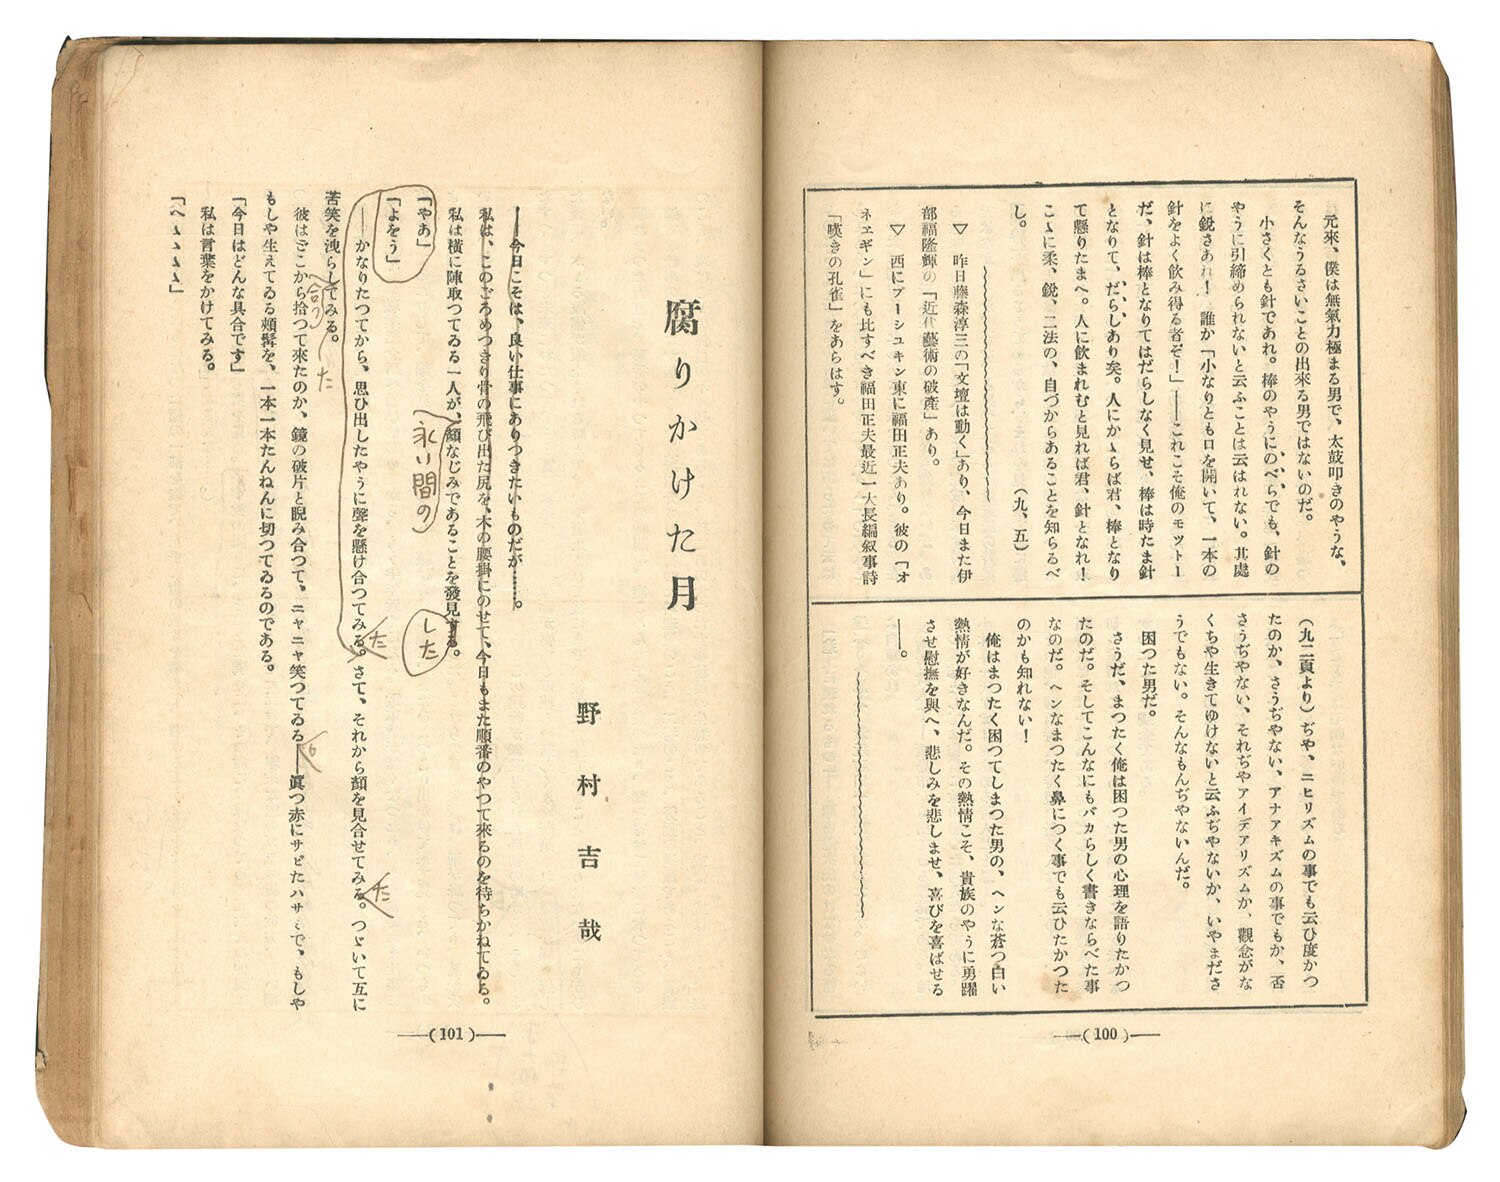 元來、僕は無氣力極まる男で、太鼓叩きのやうな、
そんなうるさいことの出來る男ではないのだ。
小さくとも針であれ。棒のやうにのべらでも、針の
やうに引締められないと云ふことは云はれない。其處
に鋭さあれ!　誰か「小なりとも口を開いて、一本の
針をよく飲み得る者ぞ!」――これこそ俺のモットー
だ、針は棒となりてはだらしなく見せ、棒は時たま針
となりて、だらしあり矣。人にかゝらば君、棒となり
て懸りたまへ。人に飲まれむと見れば君、針となれ!
こゝに柔、鋭、二法の、自づからあることを知らるべ
し。　（九、五）
▽　昨日藤森淳三の「文壇は動く」あり、今日また伊
部福隆輝の「近代藝術の破產」あり。
▽　西にプーシュキン東に福田正夫あり。彼の「オ
ネエギン」にも比すべき福田正夫最近一大長編叙事詩
「嘆きの孔雀」をあらはす。
（九二頁より）ぢや、ニヒリズムの事でも云ひ度かつ
たのか、さうぢやない、アナアキズムの事でもか、否
さうぢやない、それぢやアイデアリズムか、觀念がな
くちや生きてゆけないと云ふぢやないか、いやまださ
うでもない。そんなもんぢやないんだ。
困つた男だ。
さうだ、まつたく俺は困つた男の心理を語りたかつ
たのだ。そしてこんなにもバカらしく書きならべた事
なのだ。ヘンなまつたく鼻につく事でも云ひたかつた
のかも知れない!
俺はまつたく困つてしまつた男の、ヘンな蒼つ白い
熱情が好きなんだ。その熱情こそ、貴族のやうに勇躍
させ慰撫を與へ、悲しみを悲しませ、喜びを喜ばせる
――。
――(100)――
腐りかけた月
野村吉哉
――今日こそは、良い仕事にありつきたいものだが……。
私は、このごろめつきり骨の飛び出た尻を、木の腰掛にのせて、今日もまた順番のやつて來るのを待ちかねてゐる。
私は橫に陣取つてゐる一人が、顏なじみであることを發見する。
永い間の
した
「やあ」
「よをう」
――かなりたつてから、思ひ出したやうに聲を懸け合つてみる。さて、それから顏を見合せてみる。つゞいて互に
た
た
苦笑を洩らしてみる。
合つた
彼はどこから拾つて來たのか、鏡の破片と睨み合つて、ニヤニヤ笑つてゐる――眞つ赤にサビたハサミで、もしや
もしや生えてゐる頰髯を、一本一本たんねんに切つてゐるのである。
「今日はどんな具合です」
私は言葉をかけてみる。
「へゝゝゝゝ」
――(101)――